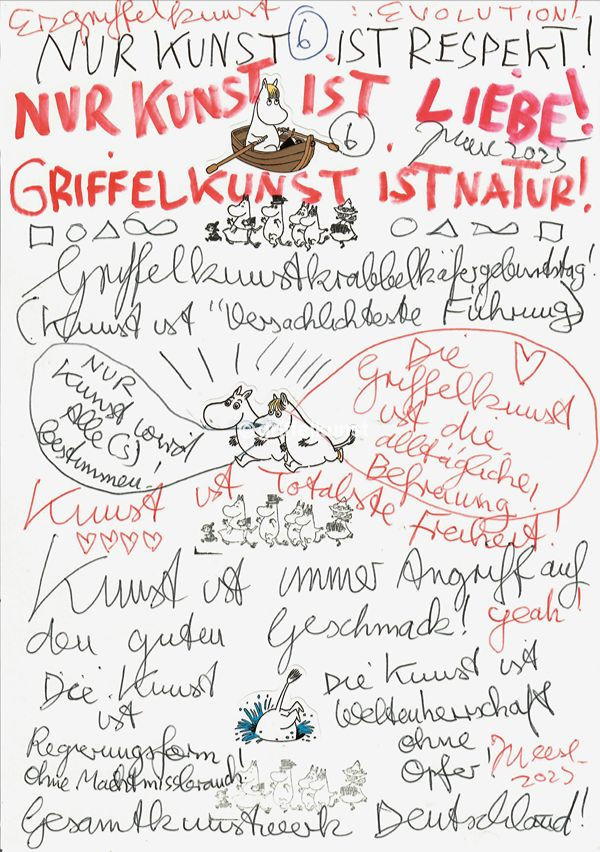 Erzgriffelkunst : . EVOLUTION!
NUR KUNST 6 IST RESPEKT!
NUR KUNST IST LIEBE!
6 Meese 2025
GRIFFELKUNST IST NATUR!
Griffelkunstkrabbelkäfergeburtstag!
(Kunst ist "Versachlichteste Führung)
NUR
Kunst wird
Alle(s)
bestimmen!
Die
Griffelkunst
ist die
alltägliche
Befreiung
Kunst ist Totalste Freiheit!
Kunst ist immer Angriff auf
den guten Geschmack! yeah!
Die Kunst
ist
Regierungsform
ohne Machtmissbrauch!
Die Kunst ist
Weltenherrschaft
ohne
Opfer!
Meese
2025
Gesamtkunstwerk Deutschland!